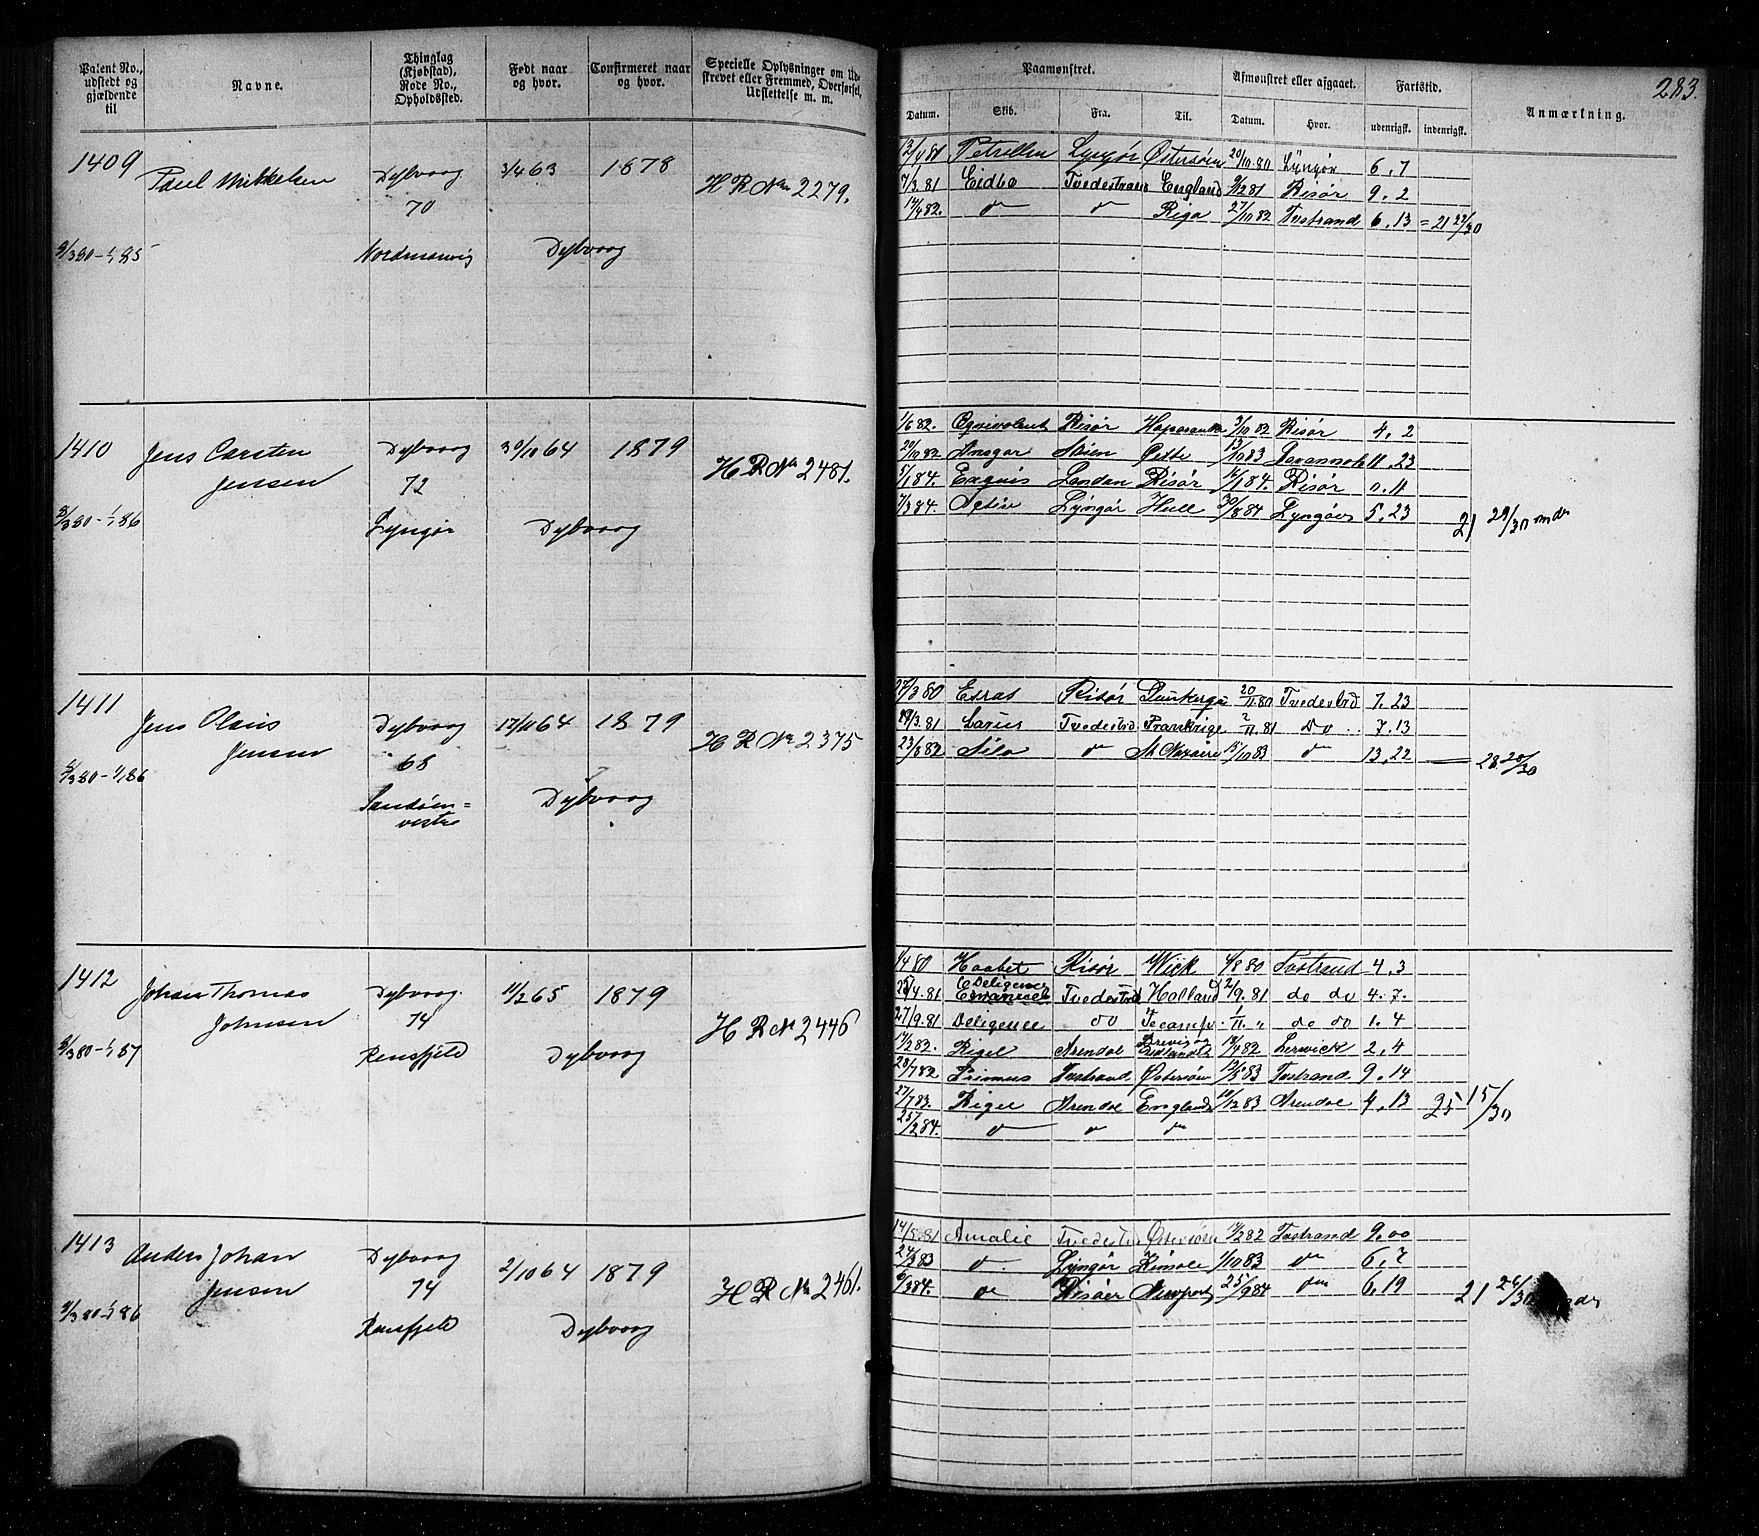 283.
Patent No., udstedt og gjældende til | Navne. | Thinglag (Kjøbstad), Rode No., Opholdssted. | Født naar og hvor. | Confirmeret naar og hvor. | Specielle Oplysninger om Udskrevet eller Fremmed, Overførsel, Udslettelse m. m.
Paamønstret. | Afmønstret eller afgaaet. | Fartstid. | Anmærkning.
Datum. | Skib. | Fra. | Til. | Datum. | Hvor. | udenrigsk. | indenrigsk.
1409 Paul Mikkelsen Dybvaag 3/4 63 1878 H R No 2279.
70
Dybvaag
12/4 80 Lyngør Østersøen 20/10 80 Lyngør 6. 7
7/3 81 Eidbo Tvedestrand England 9/12 81 Risør 9. 2
14/4 82. do do Riga 27/10 82 Tvstrand 6. 13 = 21 22/30
1410 Jens Carsten Jensen Dybvaag 30/10 64 1879 H R No 2481.
72
Lyngør Dybvaag
1/6 82. Risør Haparanda 3/10 82 Risør 4. 2
20/10 82 Ansgar Skien Cette 13/10 83 Savannah 11. 23
5/1 84. London Risør 16/1 84. Risør ". 11
7/3 84. Active Lyngør Hull 30/8 84 Lyngør 5. 23
21 29/30 mdr
1411 Jens Olaus Jensen Dybvaag 17/11 64 1879 H R No 2375
68
Sandøen= vestre Dybvaag
27/3 80 Esras Risør 20/11 80 Tvedestrd 7. 23
Tvedestrd Frankrige 2/11 81 Do 7. 13
23/3 82 do St Nazaire 15/10 83 do 13. 22
28 28/30
1412 Johan Thomas Johnsen Dybvaag 11/2 65 1879 H R No 2446
74
Rensfjeld Dybvaag
1/4 80 Haabet Risør Wick 4/8 80 Tvstrand 4. 3
Deligence
25/4 81 Emanuel Tvedestrd Holland 2/9. 81 do do 4. 7.
27/9. 81 Deligence do Fecamp 1/11. " do do 1. 4
14/2 82. Rigel Arendal 18/4 82 Lerwick 2. 4
28/7 82 Primus Tvstrand Østersøen 12/5 83 Tvstrand 9. 14
27/7 83. Rigel Arendal England 10/12 83 Arendal 4. 13
25 15/30
25/2 84. do do do
1413 Anders Johan Jensen Dybvaag 2/10 64 1879 H R No 2461.
74
Rensfjeld Dybvaag
14/5 81 Amalie Østersøen 14/2 82 Tvstrand 9. 00
24/3 83 do Lyngør 1/10 83 do 6. 7
9/3 84. do Risøer Newport 25/9 84 do 6. 19
21 26/30